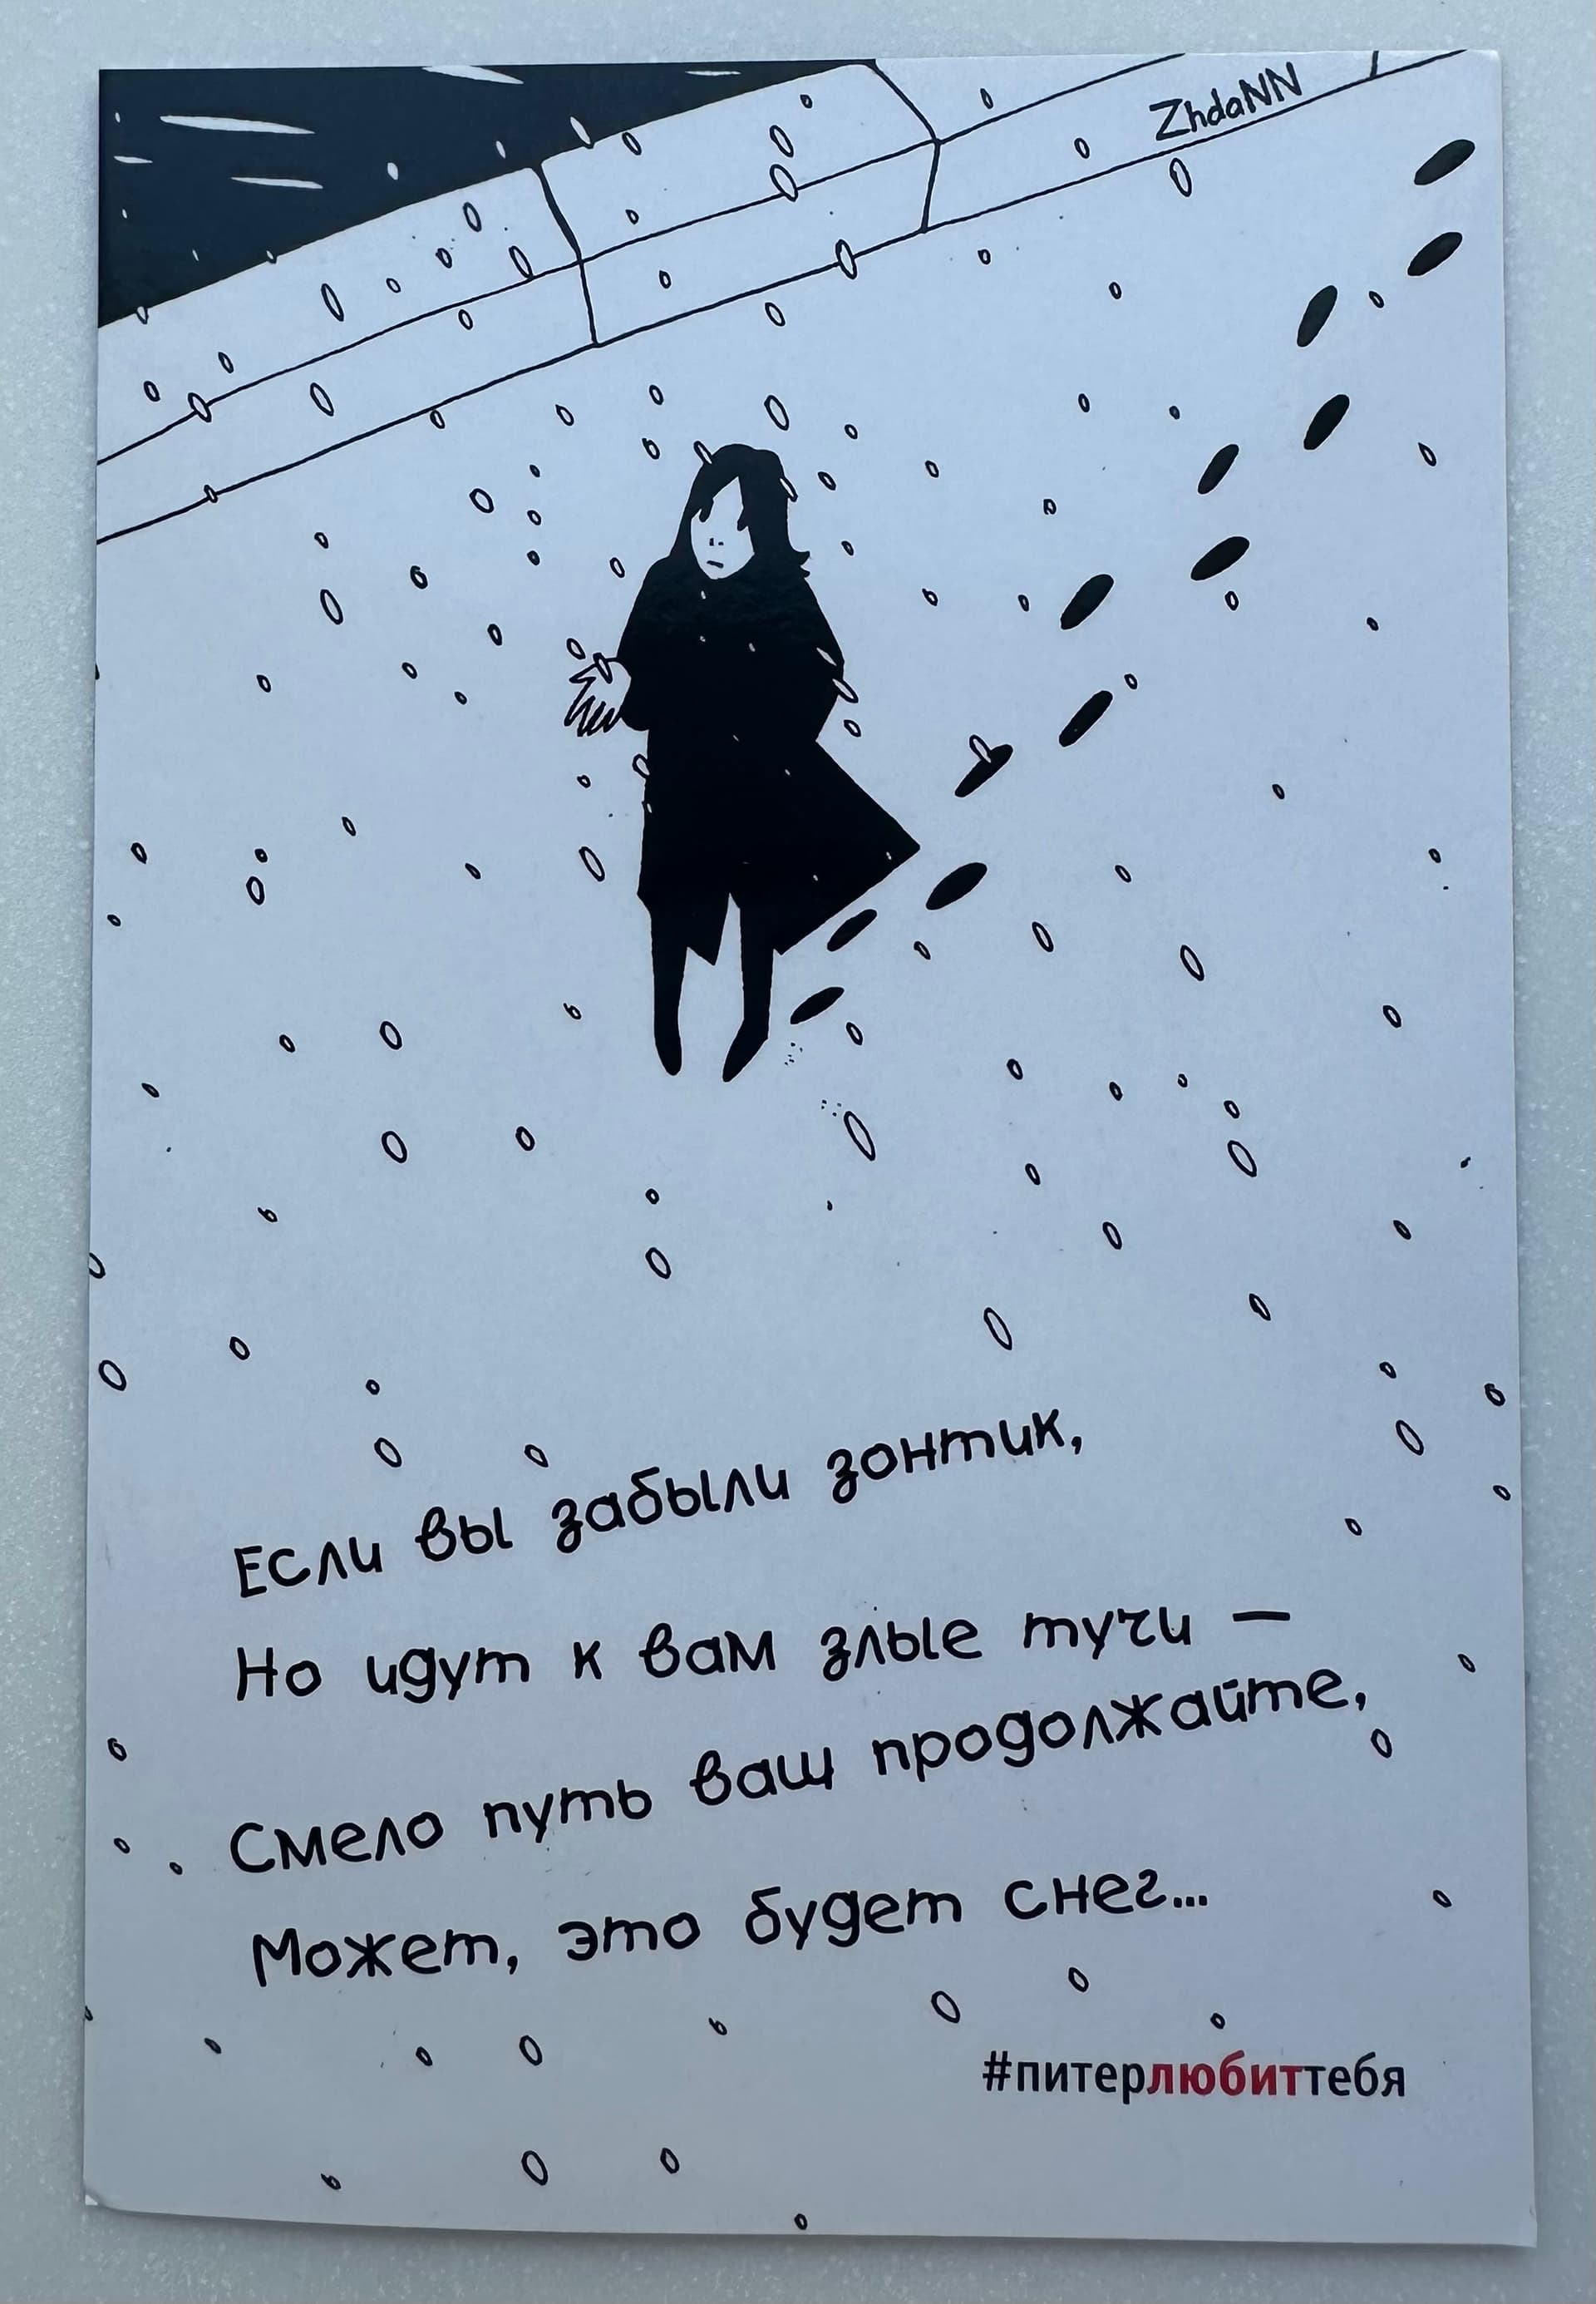 ZhdaNN
Если вы забыли зонтик,
Но идут к вам злые тучи —
Смело путь ваш продолжайте,
Может, это будет снег...
#питерлюбиттебя